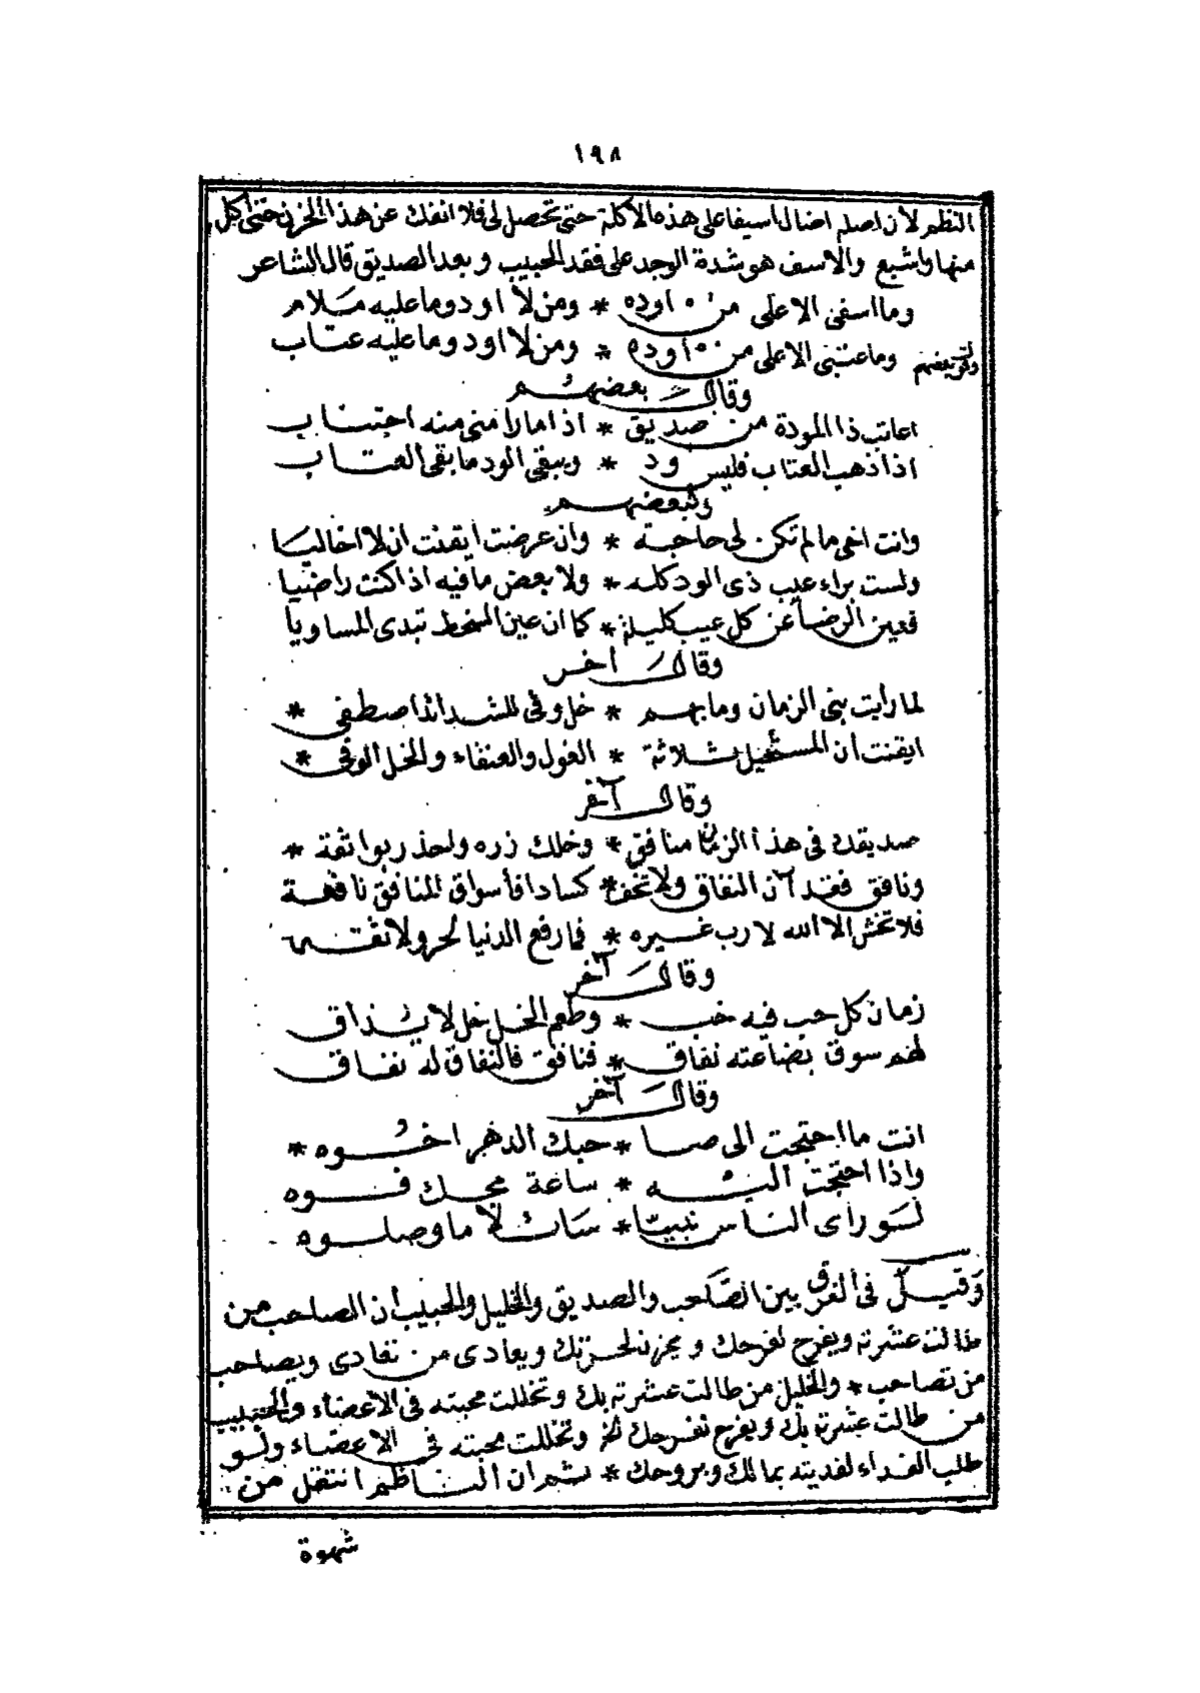 ١٩٨
النظم لأن اصله اضال اسيفا على هذه الاكلة حتى تحصل لى فلا انفك عن هذا الحزن حتى آكل
منها واشبع والاسف هو شدة الوجد على فقد الحبيب وبعد الصديق قال الشاعر
وما اسفى الا على من اوده * ومن لا اود وما عليه مـلام
ولبعضهم وما عتبى الا على من اوده * ومن لا اود وما عليه عتاب
وقال بعضهم
اعاتب ذا المودة من صديق * اذا ما رامنى منه اجتناب
اذا ذهب العتاب فليس ود * ويبقى الود ما بقى العتاب
ولبعضهم
وانت اخى ما لم تكن لى حاجة * وان عرضت ايقنت ان لا اخاليا
ولست براء عيب ذى الود كله * ولا بعض ما فيه اذا كنت راضيا
فعين الرضا عن كل عيب كليلة * كما ان عين السخط تبدى المساويا
وقال آخر
لما رأيت بنى الزمان وما بهم * خل وفى للشدائد اصطفى *
ايقنت ان المستحيل ثلاثة * الغول والعنقاء والخل الوفى *
وقال آخر
صديقك فى هذا الزمان منافق * وخلك زره واحذر بوائقه *
ونافق فقد آن النفاق ولا تخف * كسادا فأسواق المنافق نافقة
فلا تخش الا الله لا رب غيره * فما رفع الدنيا لحر ولا ثقـة
وقال آخر
زمان كل حب فيه خب * وطعم الخل خل لا يذاق
لهم سوق بضاعته نفاق * فنافق فالنفاق له نفاق
وقال آخر
انت ما احتجت الى صا * حبك الدهر اخوه *
واذا احتجت اليه * ساعة مجك فوه
لو رأى الناس نبيا * سائلا ما وصلوه
وقيل فى الفرق بين الصاحب والصديق والخليل والحبيب أن الصاحب من
طالت عشرته ويفرح لفرحك ويحزن لحزنك ويعادى من تعادى ويصاحب
من تصاحب * والخليل من طالت عشرته بك وتخللت محبته فى الاعضاء والحبيب
من طالت عشرته بك ويفرح لفرحك الخ وتخللت محبته فى الاعضاء ولو
طلب الفداء لفديته بمالك وبروحك * ثم ان الناظم انتقل من
شهوة